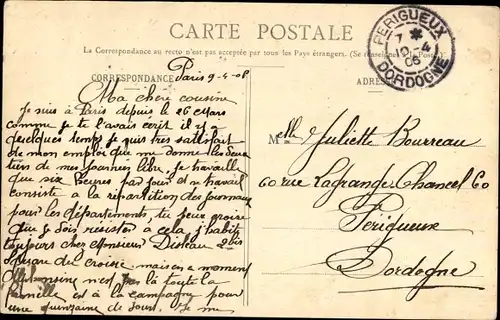 CARTE POSTALE
La Correspondance au recto n'est pas acceptée par tous les Pays étrangers. (Se renseigner à la Poste)
CORRESPONDANCE
Paris 9-4-08
Ma chère cousine
Je suis à Paris depuis le 26 Mars
comme je te l'avais écrit il y a
quelques temps je suis très satisfait
de mon emploi que me donne les
de mes journées libre, je travaille
que six heures par jour et ce travail
consiste à la repartition des journaux
pour les départements, tu peux croire
que je sois resister à cela j'habite
toujours chez Monsieur 2 bis
Square du croisic maison a moment
n'est là toute la
famille est à la campagne pour
une quinzaine de jours. Je me
PERIGUEUX
DORDOGNE
ADRESSE
Mlle Juliette Bourreau
60 rue Lagrange Chancel 60
Périgueux
Dordogne